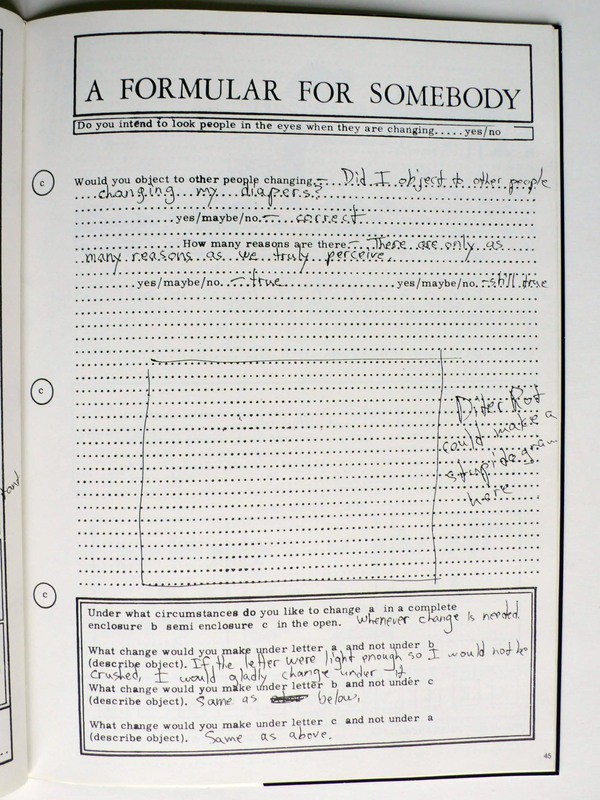 A FORMULAR FOR SOMEBODY
Do you intend to look people in the eyes when they are changing.....yes/no
c
Would you object to other people changing.— Did I object to other people
changing my diapers?
yes/maybe/no.— correct
How many reasons are there.— There are only as
many reasons as we truly perceive.
yes/maybe/no.— true yes/maybe/no.—still true
c
Diter Rot
could make a
stupidogram
here
c
Under what circumstances do you like to change a in a complete
enclosure b semi enclosure c in the open. Whenever change is needed.
What change would you make under letter a and not under b
(describe object). If the letter were light enough so I would not be
crushed, I would gladly change under it
What change would you make under letter b and not under c
(describe object). Same as below.
What change would you make under letter c and not under a
(describe object). Same as above.
45